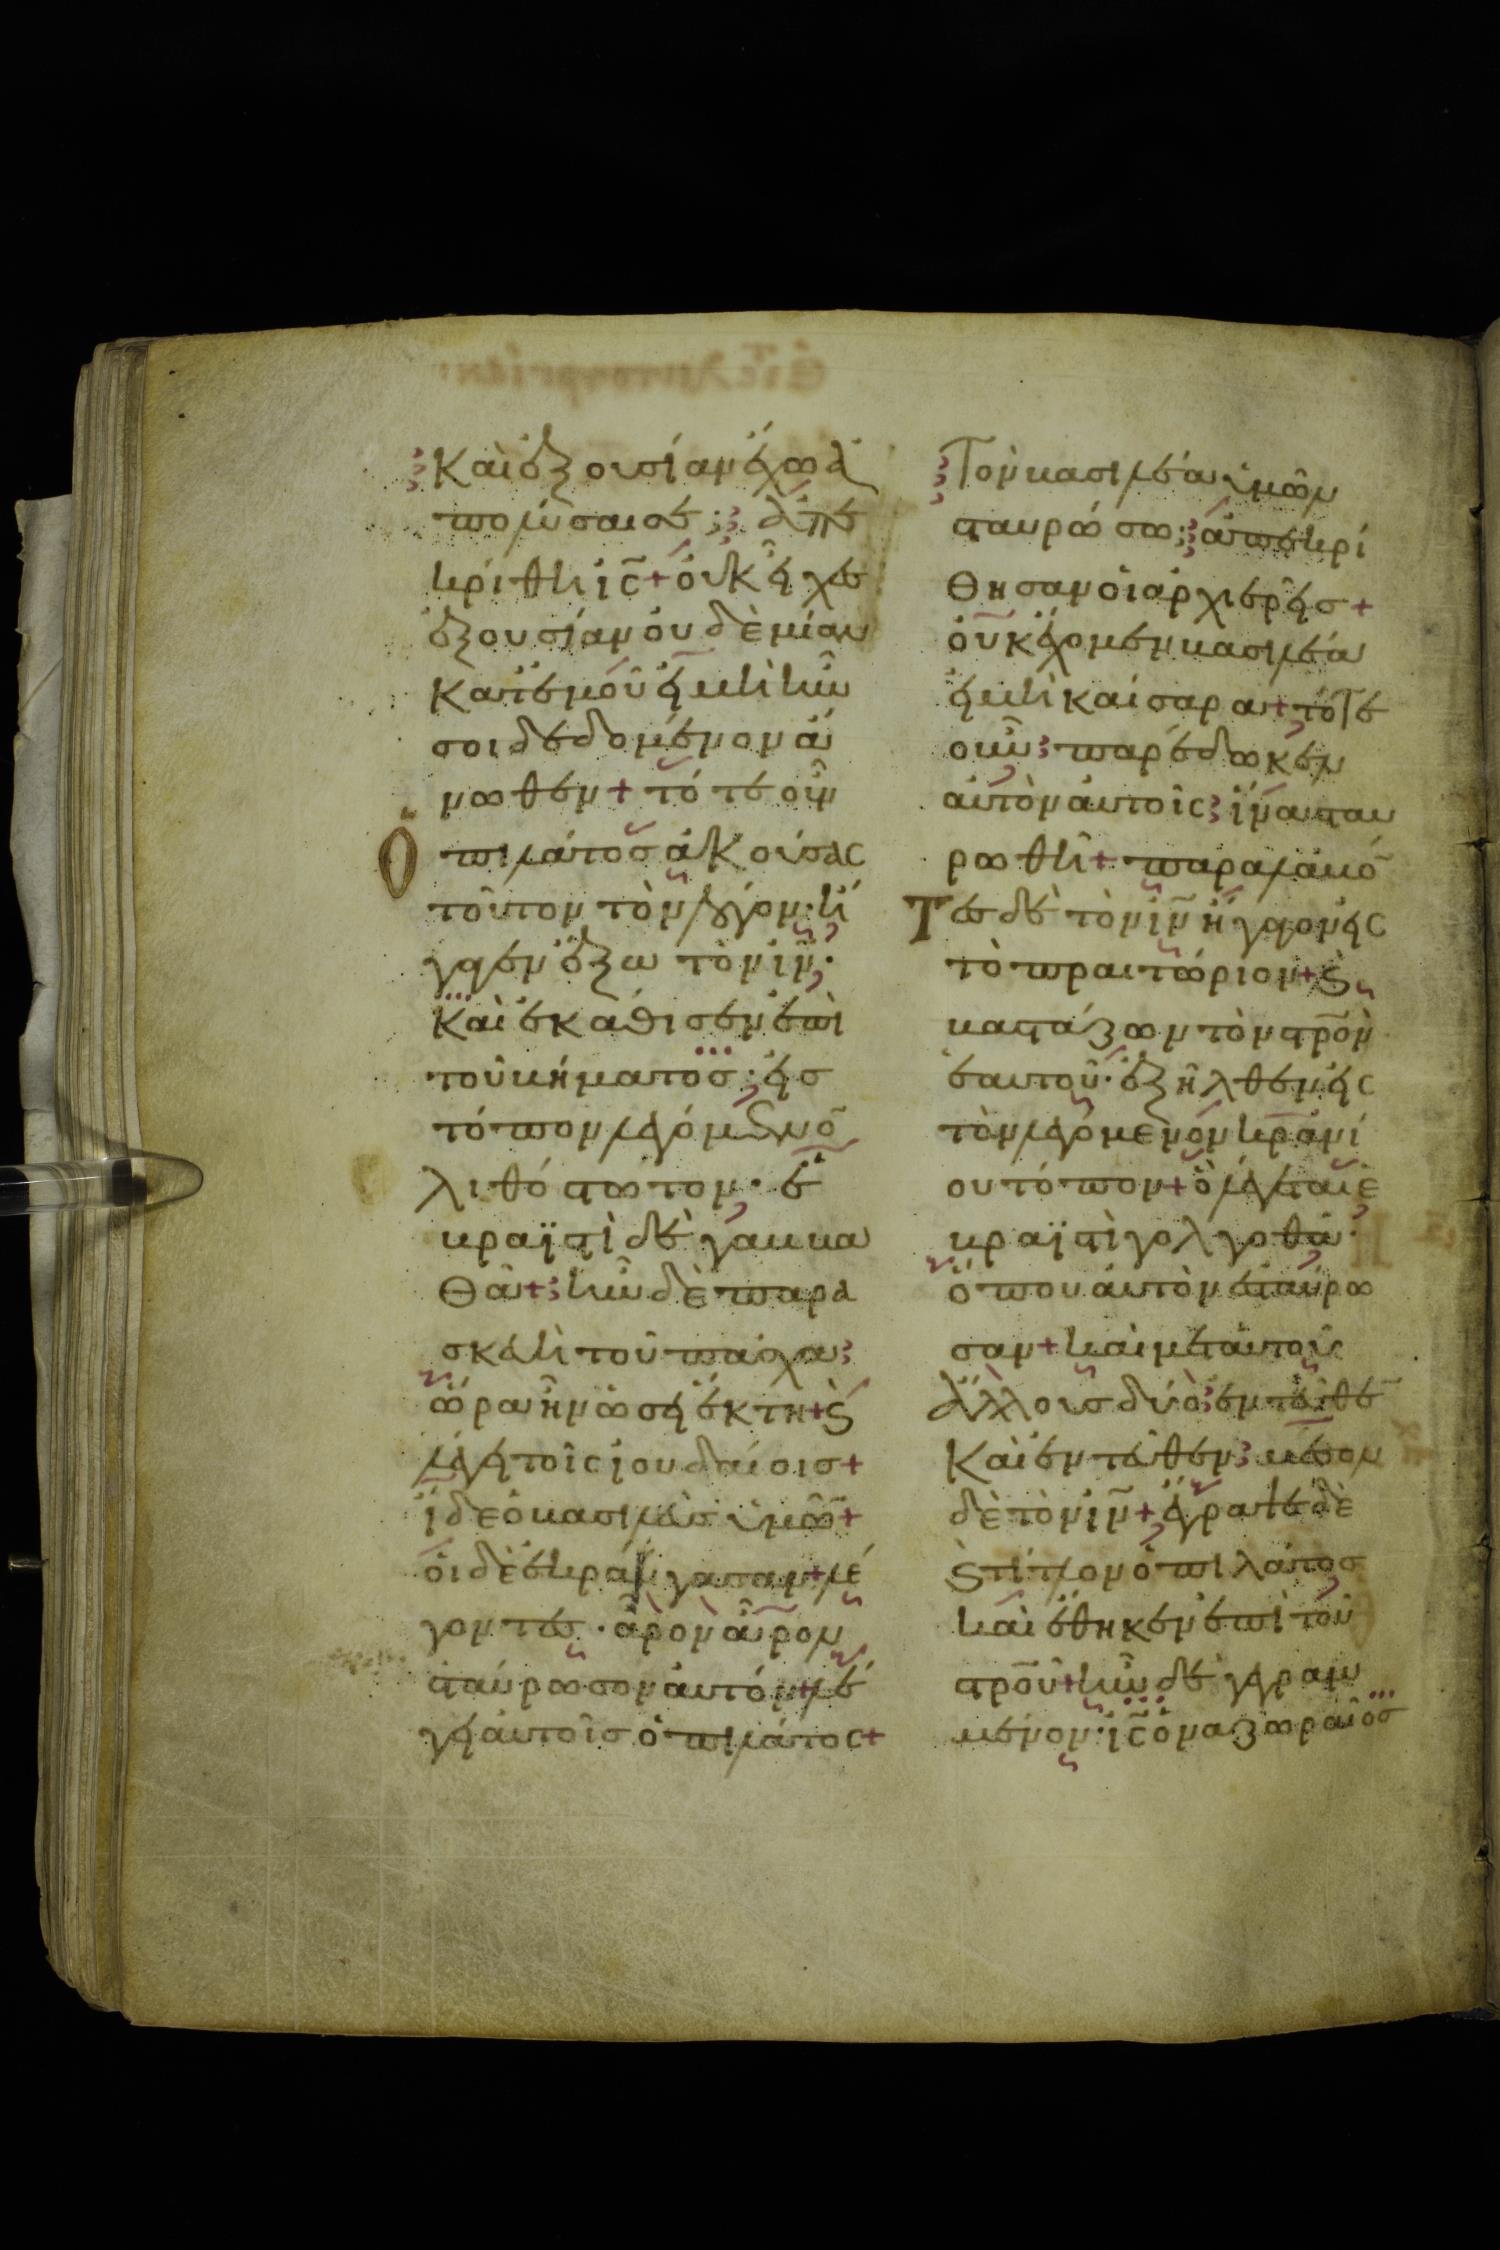 Καὶ ἐξουσίαν ἔχω ἀ
πολῦσαι σε; ἀπε
κρίθη ἰ̅ς̅ + οὐκ εἶχες
ἐξουσίαν οὐδὲ μίαν
κατ' ἐμοῦ εἰ μὴ ἦν
σοι δεδομένον ἄ
νωθεν + τότε οὖν
Ὁ πιλάτος ἀκούσας
τοῦτον τὸν λόγον· ἤ
γαγεν ἔξω τὸν ἰ̅ν̅·
Καὶ ἐκάθισεν ἐπὶ
τοῦ βήματος· εἰς
τόπον λεγόμενο̅
λιθόστρωτον· ἑ
βραϊστὶ δὲ γαββα
θᾶ + ἦν δὲ παρα
σκευὴ τοῦ πάσχα
ὥρα ἦν ὡσεὶ ἕκτη + ϗ
λέγει τοῖς ἰουδαίοις +
ἴδε ὁ βασιλεὺς ὑμῶ̅ +
οἱ δὲ ἐκραύγασαν + λέ
γοντες· ἆρον ἆρον
σταύρωσον αὐτόν + λέ
γει αὐτοῖς ὁ πιλάτος +
Τὸν βασιλέα ὑμῶν
σταυρώσω; ἀπεκρί
θησαν οἱ ἀρχιερεῖς +
οὐκ ἔχομεν βασιλέα
εἰ μὴ καίσαρα + τότε
οὖν παρέδωκεν
αὐτὸν αὐτοῖς ἵνα σταυ
ρωθῆ + παραλαβό̅
Τες δὲ τὸν ἰ̅ν̅ ἤγαγον εἰς
τὸ πραιτώριον + ϗ
βαστάζων τὸν σ̅τ̅ρ̅ὸν
ἑαυτοῦ· ἐξῆλθεν εἰς
τὸν λεγόμενον κρανί
ου τόπον + ὃ λέγεται ἑ
βραϊστὶ γολγοθᾶ·
ὅπου αὐτὸν ἐσταύρω
σαν + καὶ μετ' αὐτοῦ
ἄλλους δύο ἐντεῦθε̅
Καὶ ἐντεῦθεν· μέσον
δὲ τὸν ἰ̅ν̅ + ἔγραψε δὲ
ϗ τίτλον ὁ πιλάτος
καὶ ἔθηκεν ἐπὶ τοῦ
σ̅τ̅ρ̅οῦ + ἦν δὲ γεγραμ
μένον· ἰ̅ς̅ ὁ ναζωραῖος